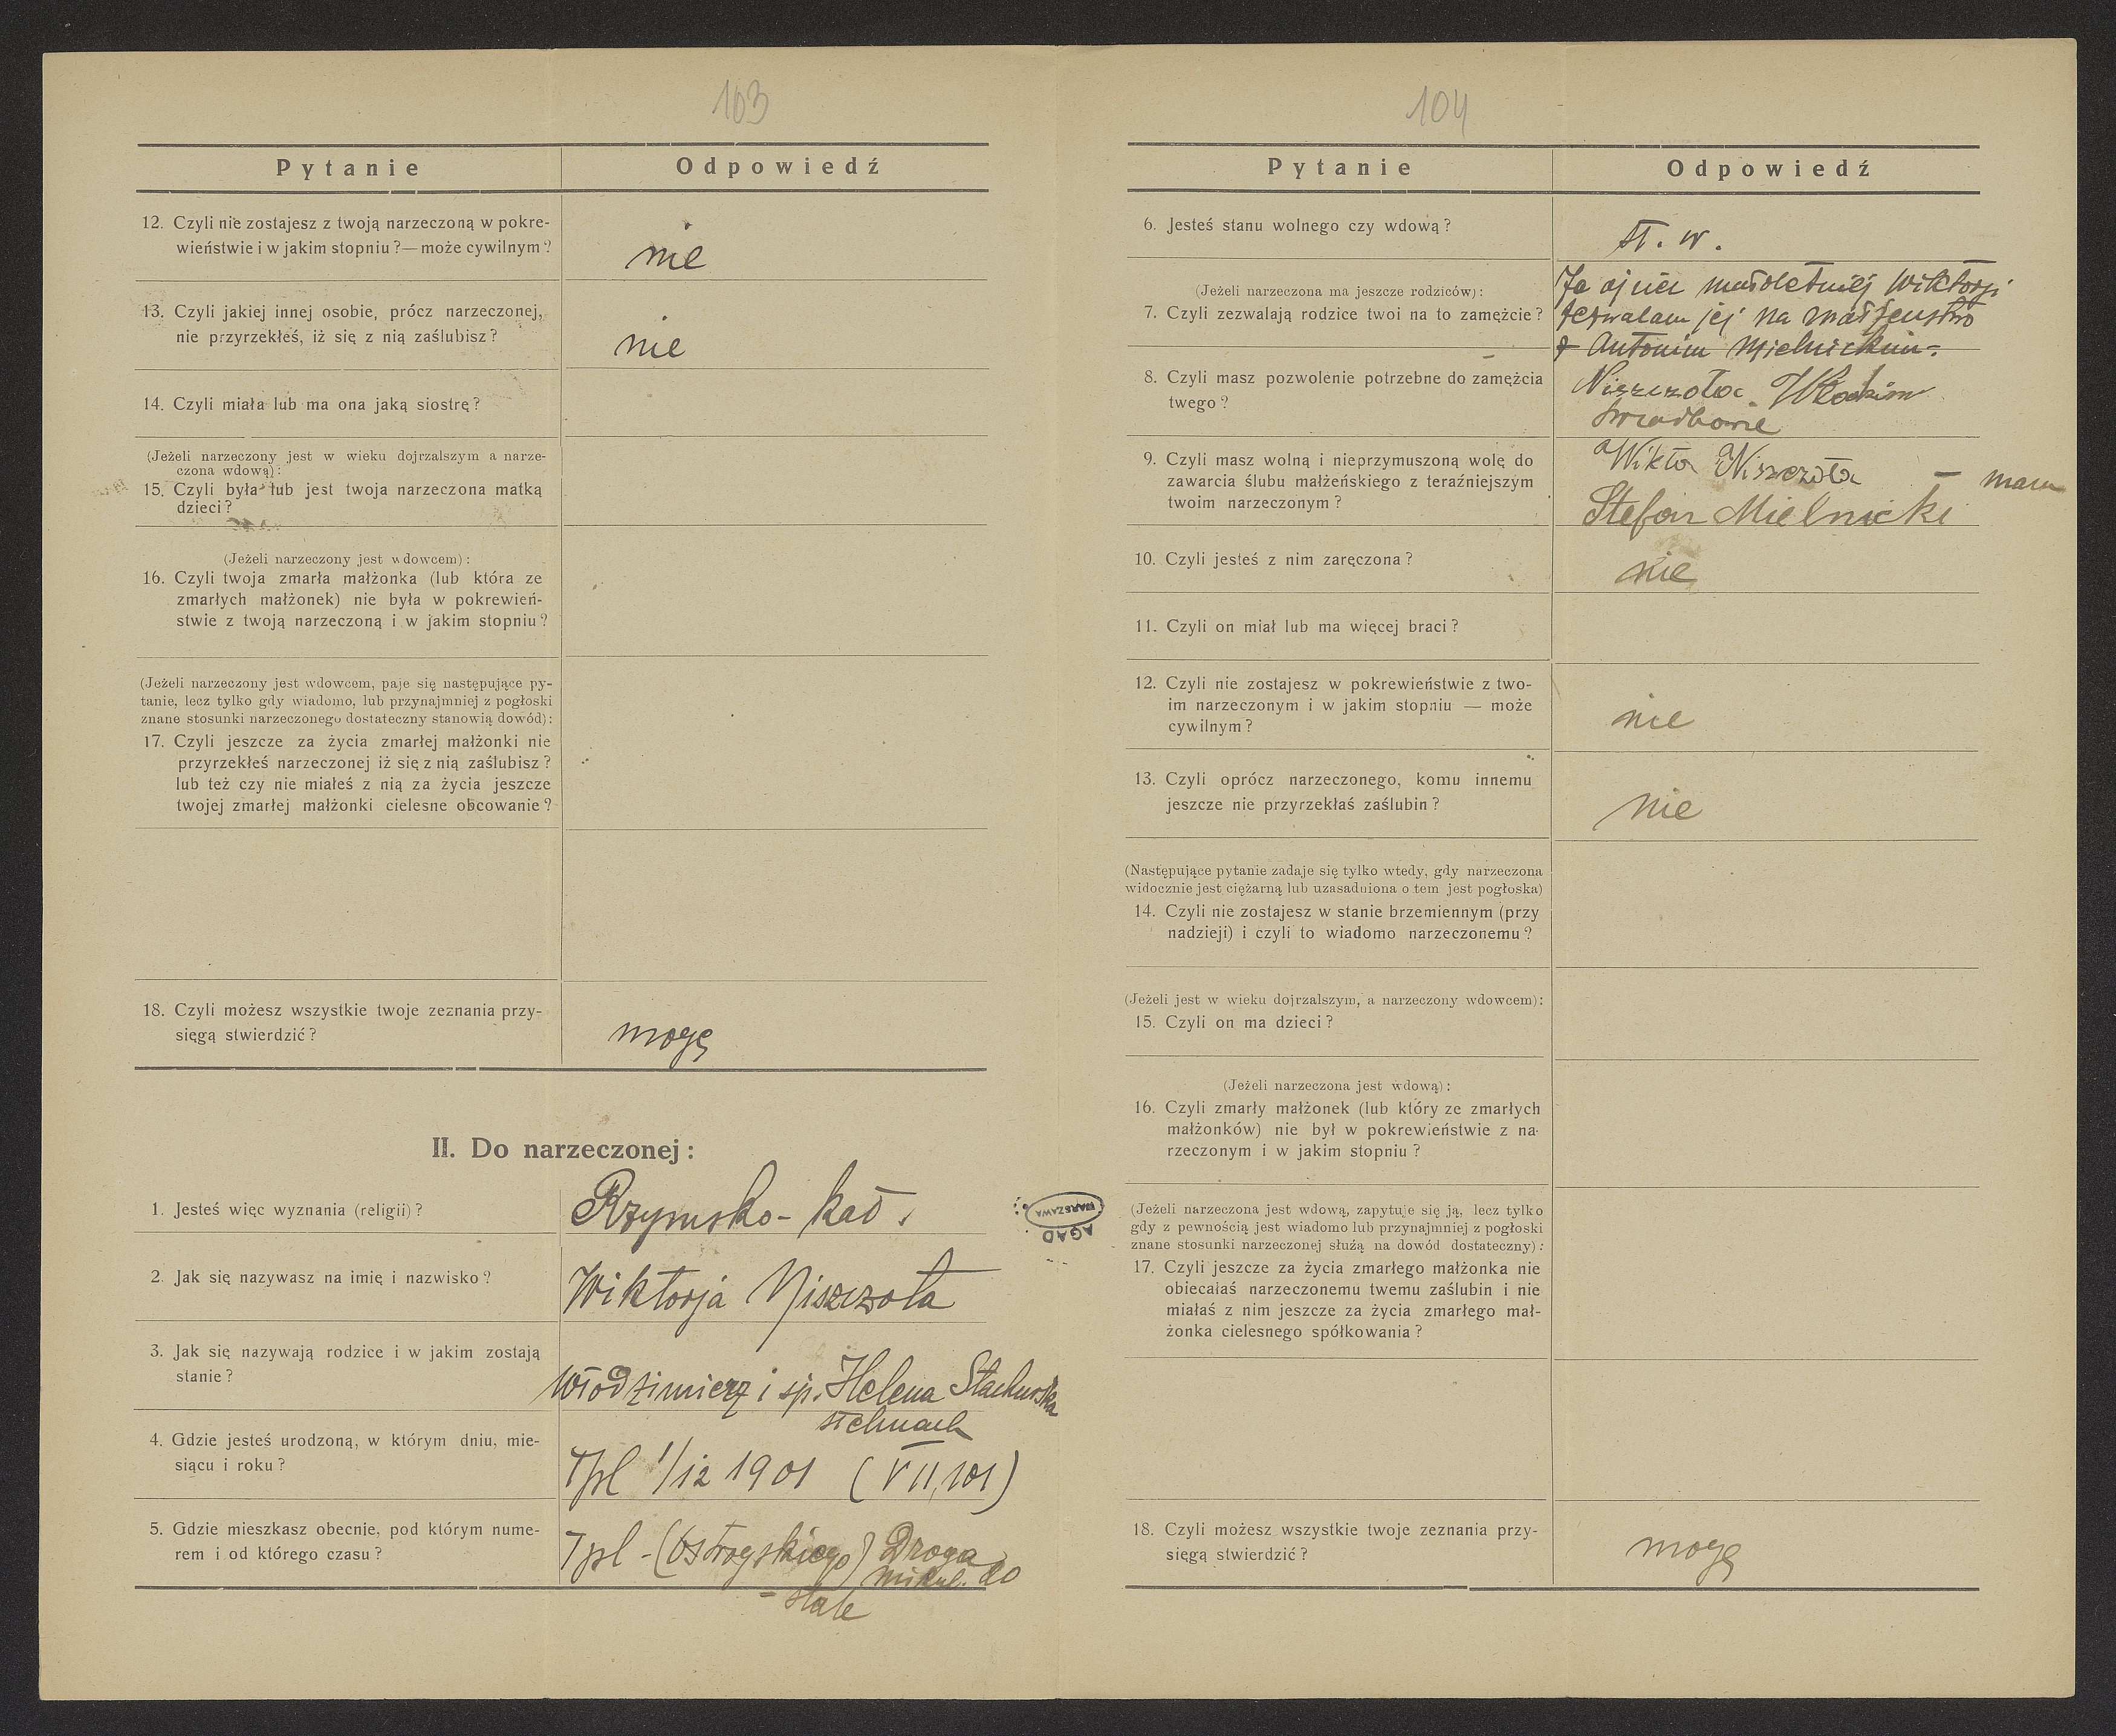 103
Pytanie
Odpowiedź
12. Czyli nie zostajesz z twoją narzeczoną w pokre-
wieństwie i w jakim stopniu ?—może cywilnym ?
nie
13. Czyli jakiej innej osobie, prócz narzeczonej,
nie przyrzekłeś, iż się z nią zaślubisz ?
nie
14. Czyli miała lub ma ona jaką siostrę ?
(Jeżeli narzeczony jest w wieku dojrzalszym a narze-
czona wdową) :
15. Czyli była lub jest twoja narzeczona matką
dzieci ?
(Jeżeli narzeczony jest wdowcem) :
16. Czyli twoja zmarła małżonka (lub która ze
zmarłych małżonek) nie była w pokrewień-
stwie z twoją narzeczoną i w jakim stopniu ?
(Jeżeli narzeczony jest wdowcem, paje się następujące py-
tanie, lecz tylko gdy wiadomo, lub przynajmniej z pogłoski
znane stosunki narzeczonego dostateczny stanowią dowód) :
17. Czyli jeszcze za życia zmarłej małżonki nie
przyrzekłeś narzeczonej iż się z nią zaślubisz ?
lub też czy nie miałeś z nią za życia jeszcze
twojej zmarłej małżonki cielesne obcowanie ?
18. Czyli możesz wszystkie twoje zeznania przy-
sięgą stwierdzić ?
mogę
II. Do narzeczonej :
1. Jesteś więc wyznania (religii) ?
Rzymsko-kat.
2. Jak się nazywasz na imię i nazwisko ?
Wiktorja Niszczota
3. Jak się nazywają rodzice i w jakim zostają
stanie ?
Włodzimierz i śp. Helena Stachurska
4. Gdzie jesteś urodzoną, w którym dniu, mie-
siącu i roku ?
Tpl 1/12 1901 (VII,101)
5. Gdzie mieszkasz obecnie, pod którym nume-
rem i od którego czasu ?
Tpl - (Ostrogskiego) Droga
Mikul. 20
- stale
AGAD
WARSZAWA
104
Pytanie
Odpowiedź
6. Jesteś stanu wolnego czy wdową ?
st. w.
(Jeżeli narzeczona ma jeszcze rodziców) :
7. Czyli zezwalają rodzice twoi na to zamężcie ?
Ja ojciec małoletniej Wiktorji
zezwalam jej na małżeństwo
z Antonim Mielnickim-
8. Czyli masz pozwolenie potrzebne do zamężcia
twego ?
Niszczota
9. Czyli masz wolną i nieprzymuszoną wolę do
zawarcia ślubu małżeńskiego z teraźniejszym
twoim narzeczonym ?
Wikto Niszczota
— mam
Stefan Mielnicki
10. Czyli jesteś z nim zaręczona ?
nie
11. Czyli on miał lub ma więcej braci ?
12. Czyli nie zostajesz w pokrewieństwie z two-
im narzeczonym i w jakim stopniu — może
cywilnym ?
nie
13. Czyli oprócz narzeczonego, komu innemu
jeszcze nie przyrzekłaś zaślubin ?
nie
(Następujące pytanie zadaje się tylko wtedy, gdy narzeczona
widocznie jest ciężarną lub uzasadniona o tem jest pogłoska)
14. Czyli nie zostajesz w stanie brzemiennym (przy
nadzieji) i czyli to wiadomo narzeczonemu ?
(Jeżeli jest w wieku dojrzalszym, a narzeczony wdowcem) :
15. Czyli on ma dzieci ?
(Jeżeli narzeczona jest wdową) :
16. Czyli zmarły małżonek (lub który ze zmarłych
małżonków) nie był w pokrewieństwie z na-
rzeczonym i w jakim stopniu ?
(Jeżeli narzeczona jest wdową, zapytuje się ją, lecz tylko
gdy z pewnością jest wiadomo lub przynajmniej z pogłoski
znane stosunki narzeczonej służą na dowód dostateczny) :
17. Czyli jeszcze za życia zmarłego małżonka nie
obiecałaś narzeczonemu twemu zaślubin i nie
miałaś z nim jeszcze za życia zmarłego mał-
żonka cielesnego spółkowania ?
18. Czyli możesz wszystkie twoje zeznania przy-
sięgą stwierdzić ?
mogę